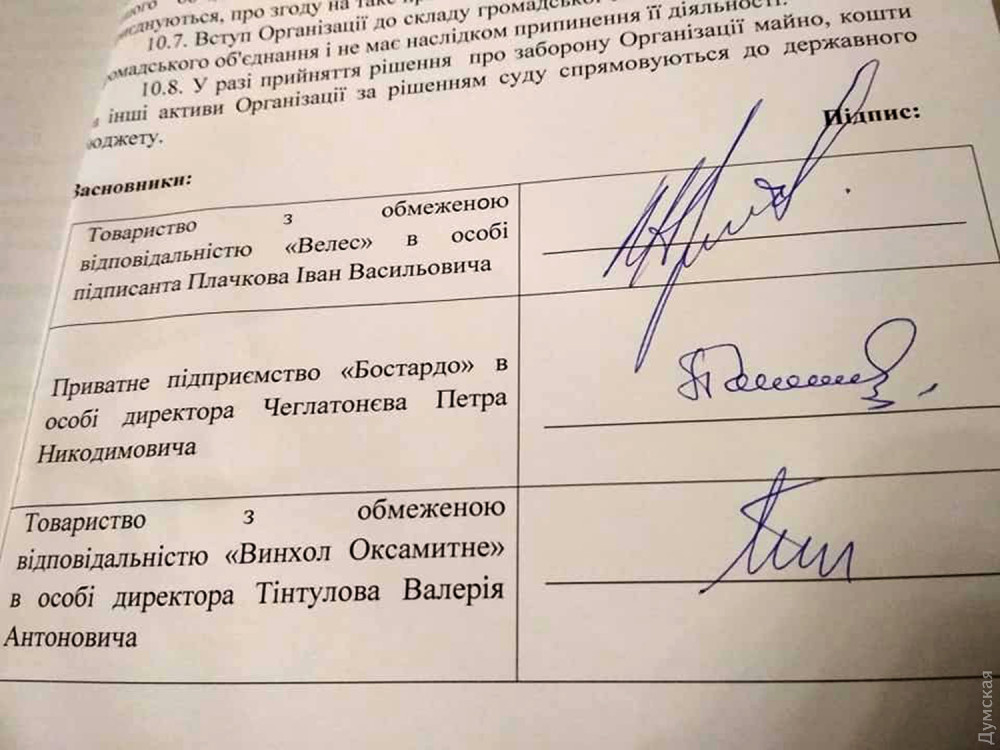 про згоду на таке
10.7. Вступ Організації до складу громадської
громадського об'єднання і не має наслідком припинення її діяльності.
10.8. У разі прийняття рішення про заборону Організації майно, кошти
інші активи Організації за рішенням суду спрямовуються до державного
бюджету.
Підпис:
Засновники:
Товариство з обмеженою
відповідальністю «Велес» в особі
підписанта Плачкова Іван Васильовича
Приватне підприємство «Бостардо» в
особі директора Чеглатонєва Петра
Никодимовича
Товариство з обмеженою
відповідальністю «Винхол Оксамитне»
в особі директора Тінтулова Валерія
Антоновича
Думская